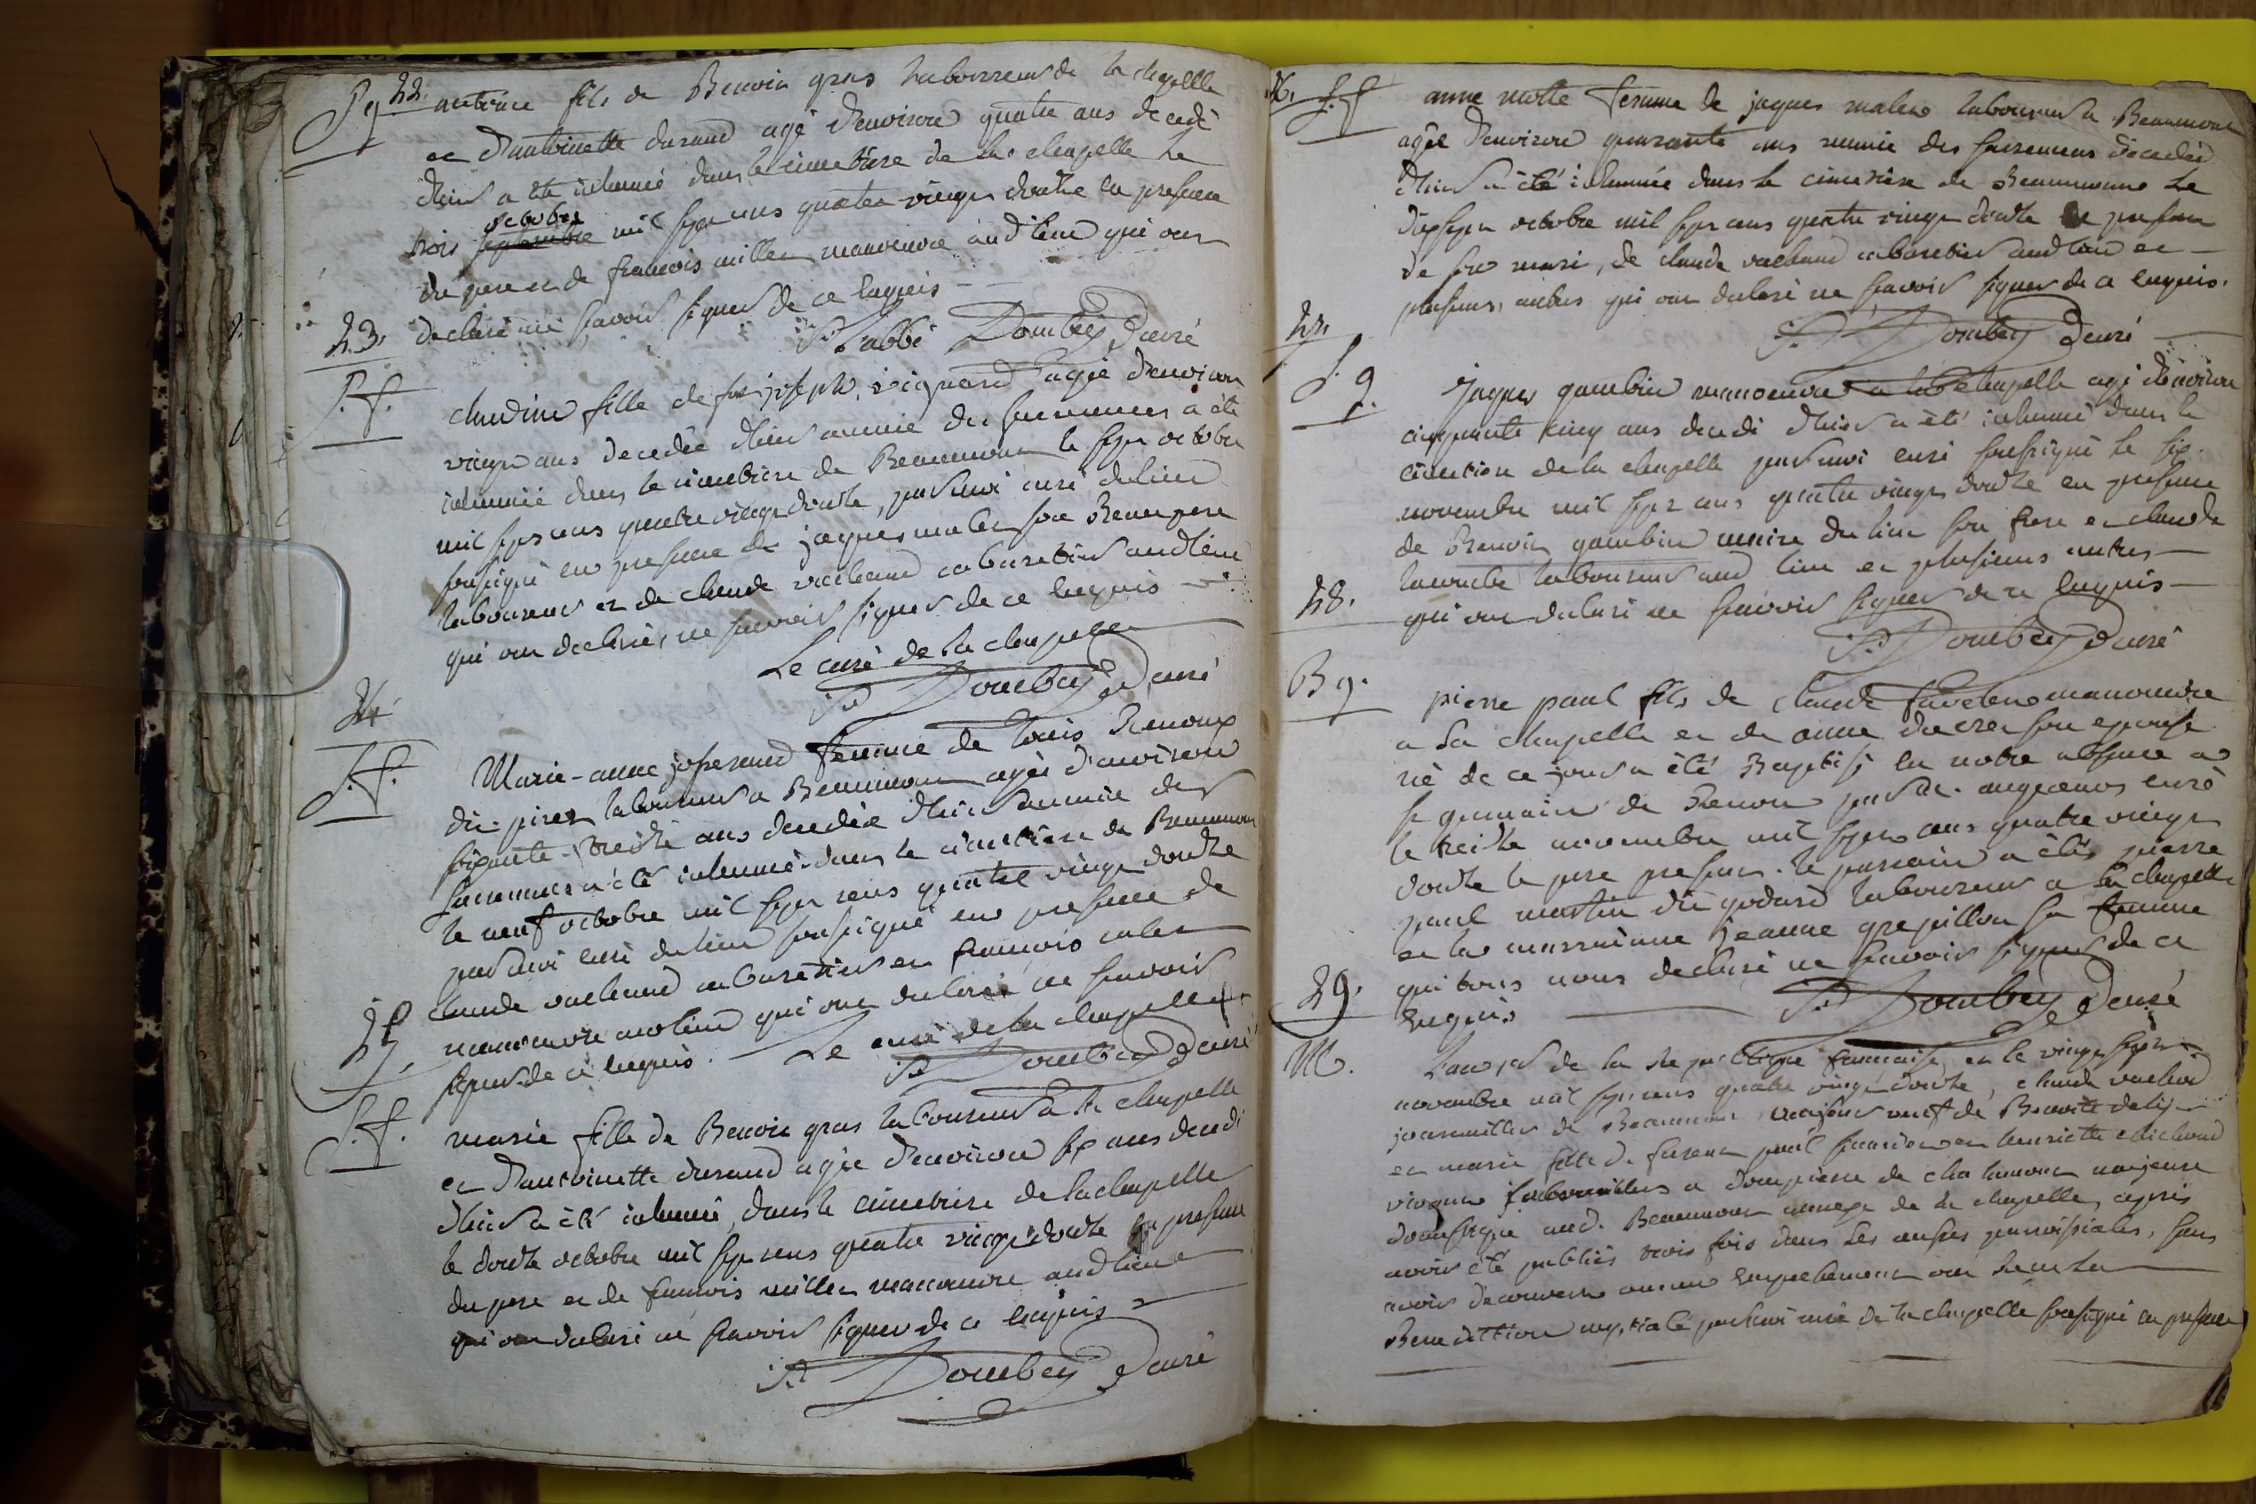 22.
S g antoine fils de Benoin gras laboureur de la chapelle
et D'antoinette durand agé d'environ quatre ans decedé
d'hier a eté inhumé dans le cimetiere de la chapelle le
octobre
trois septembre mil sept cens quatre vingt douze en presence
du pere et de francois millet manoeuvre aud lieu qui ont
declaré ne sçavoir signer de ce enquis
P. l'abbé Dombey Curé
23.
S. f.
claudine fille de feu joseph agée d'environ
vingt ans decedée d'hier munie des sacremens a été
inhumée dans le cimetiere de Beaumont le sept octobre
mil sept cens quatre vingt douze, par moi curé du lieu
soussigné en presence de jaques maler son Beau pere
laboureur et de claude vachaud cabaretier aud lieu
qui ont declaré, ne sçavoir signer de ce enquis
Le curé de la chapelle
P. Dombey Curé
24
S. f.
Marie-anne joperand femme de Louis Renoux
dit piret laboureur a Beaumont agée d'environ
soixante-treize ans decedée d'hier munie des
sacremens a été inhumée dans le cimetiere de Beaumont
le neuf octobre mil sept cens quatre vingt douze
par moi curé du lieu soussigné en presence de
claude vachaud cabaretier et francois
manoeuvre aud lieu qui ont declaré ne sçavoir
signer de ce enquis. Le curé de la chapelle
P. Dombey Curé
25
S. f.
marie fille de Benoin gras laboureur a la chapelle
et D'antoinette durand agée d'environ six ans decedé
d'hier a été inhumé, dans le cimetiere de la chapelle
le douze octobre mil sept cens quatre vingt douze en presence
du pere et de francois millet manoeuvre aud lieu
qui ont declaré ne sçavoir signer de ce enquis
P. Dombey Curé
26.
S. f
anne motte femme de jaques maler laboureur a Beaumont
agée d'environ quarante ans munie des sacremens decedée
d'hier a été inhumée dans le cimetiere de Beaumont le
dix sept octobre mil sept cens quatre vingt douze en presence
de son mari, de claude vachaud cabaretier aud lieu et
plusieurs autres qui ont declaré ne sçavoir signer de ce enquis.
P. Dombey Curé
27.
S. g.
jaques gambin manoeuvre a la chapelle agé d'environ
cinquante cinq ans decedé d'hier a été inhumé dans le
cimetiere de la chapelle par moi curé soussigné le six
novembre mil sept cens quatre vingt douze en presence
de Benoin gambin maire du lieu son frere et claude
laboureur aud lieu et plusieurs autres
qui ont declaré ne sçavoir signer de ce enquis
P. Dombey Curé
28.
B g.
pierre paul fils de claude manoeuvre
a la chapelle et de anne ducret son epouse
né de ce jour a été Baptisé en notre absence a
st germain de Renon par mr. curé
le treize novembre mil sept cens quatre vingt
douze le pere present. le parrain a été pierre
paul martin dit godard laboureur a la chapelle
et la marraine jeanne grepillon sa femme
qui tous nous declaré ne sçavoir signer de ce
enquis
P. Dombey Curé
29.
M.
L'an 1er de la Republique francaise et le vingt sept
novembre mil sept cens quatre vingt douze, claude vachaud
journaillier de Beaumont, majeur veuf de Benoite
et marie fille de et henriette Michaud
a dompierre de chalamont majeure
domestique aud. Beaumont annexe de la chapelle, apres
avoir été publiés trois fois dans les messes parroissiales, sans
avoir decouvert aucun empechement ont recu la
Benediction nuptiale par moi curé de la chapelle soussigné en presence